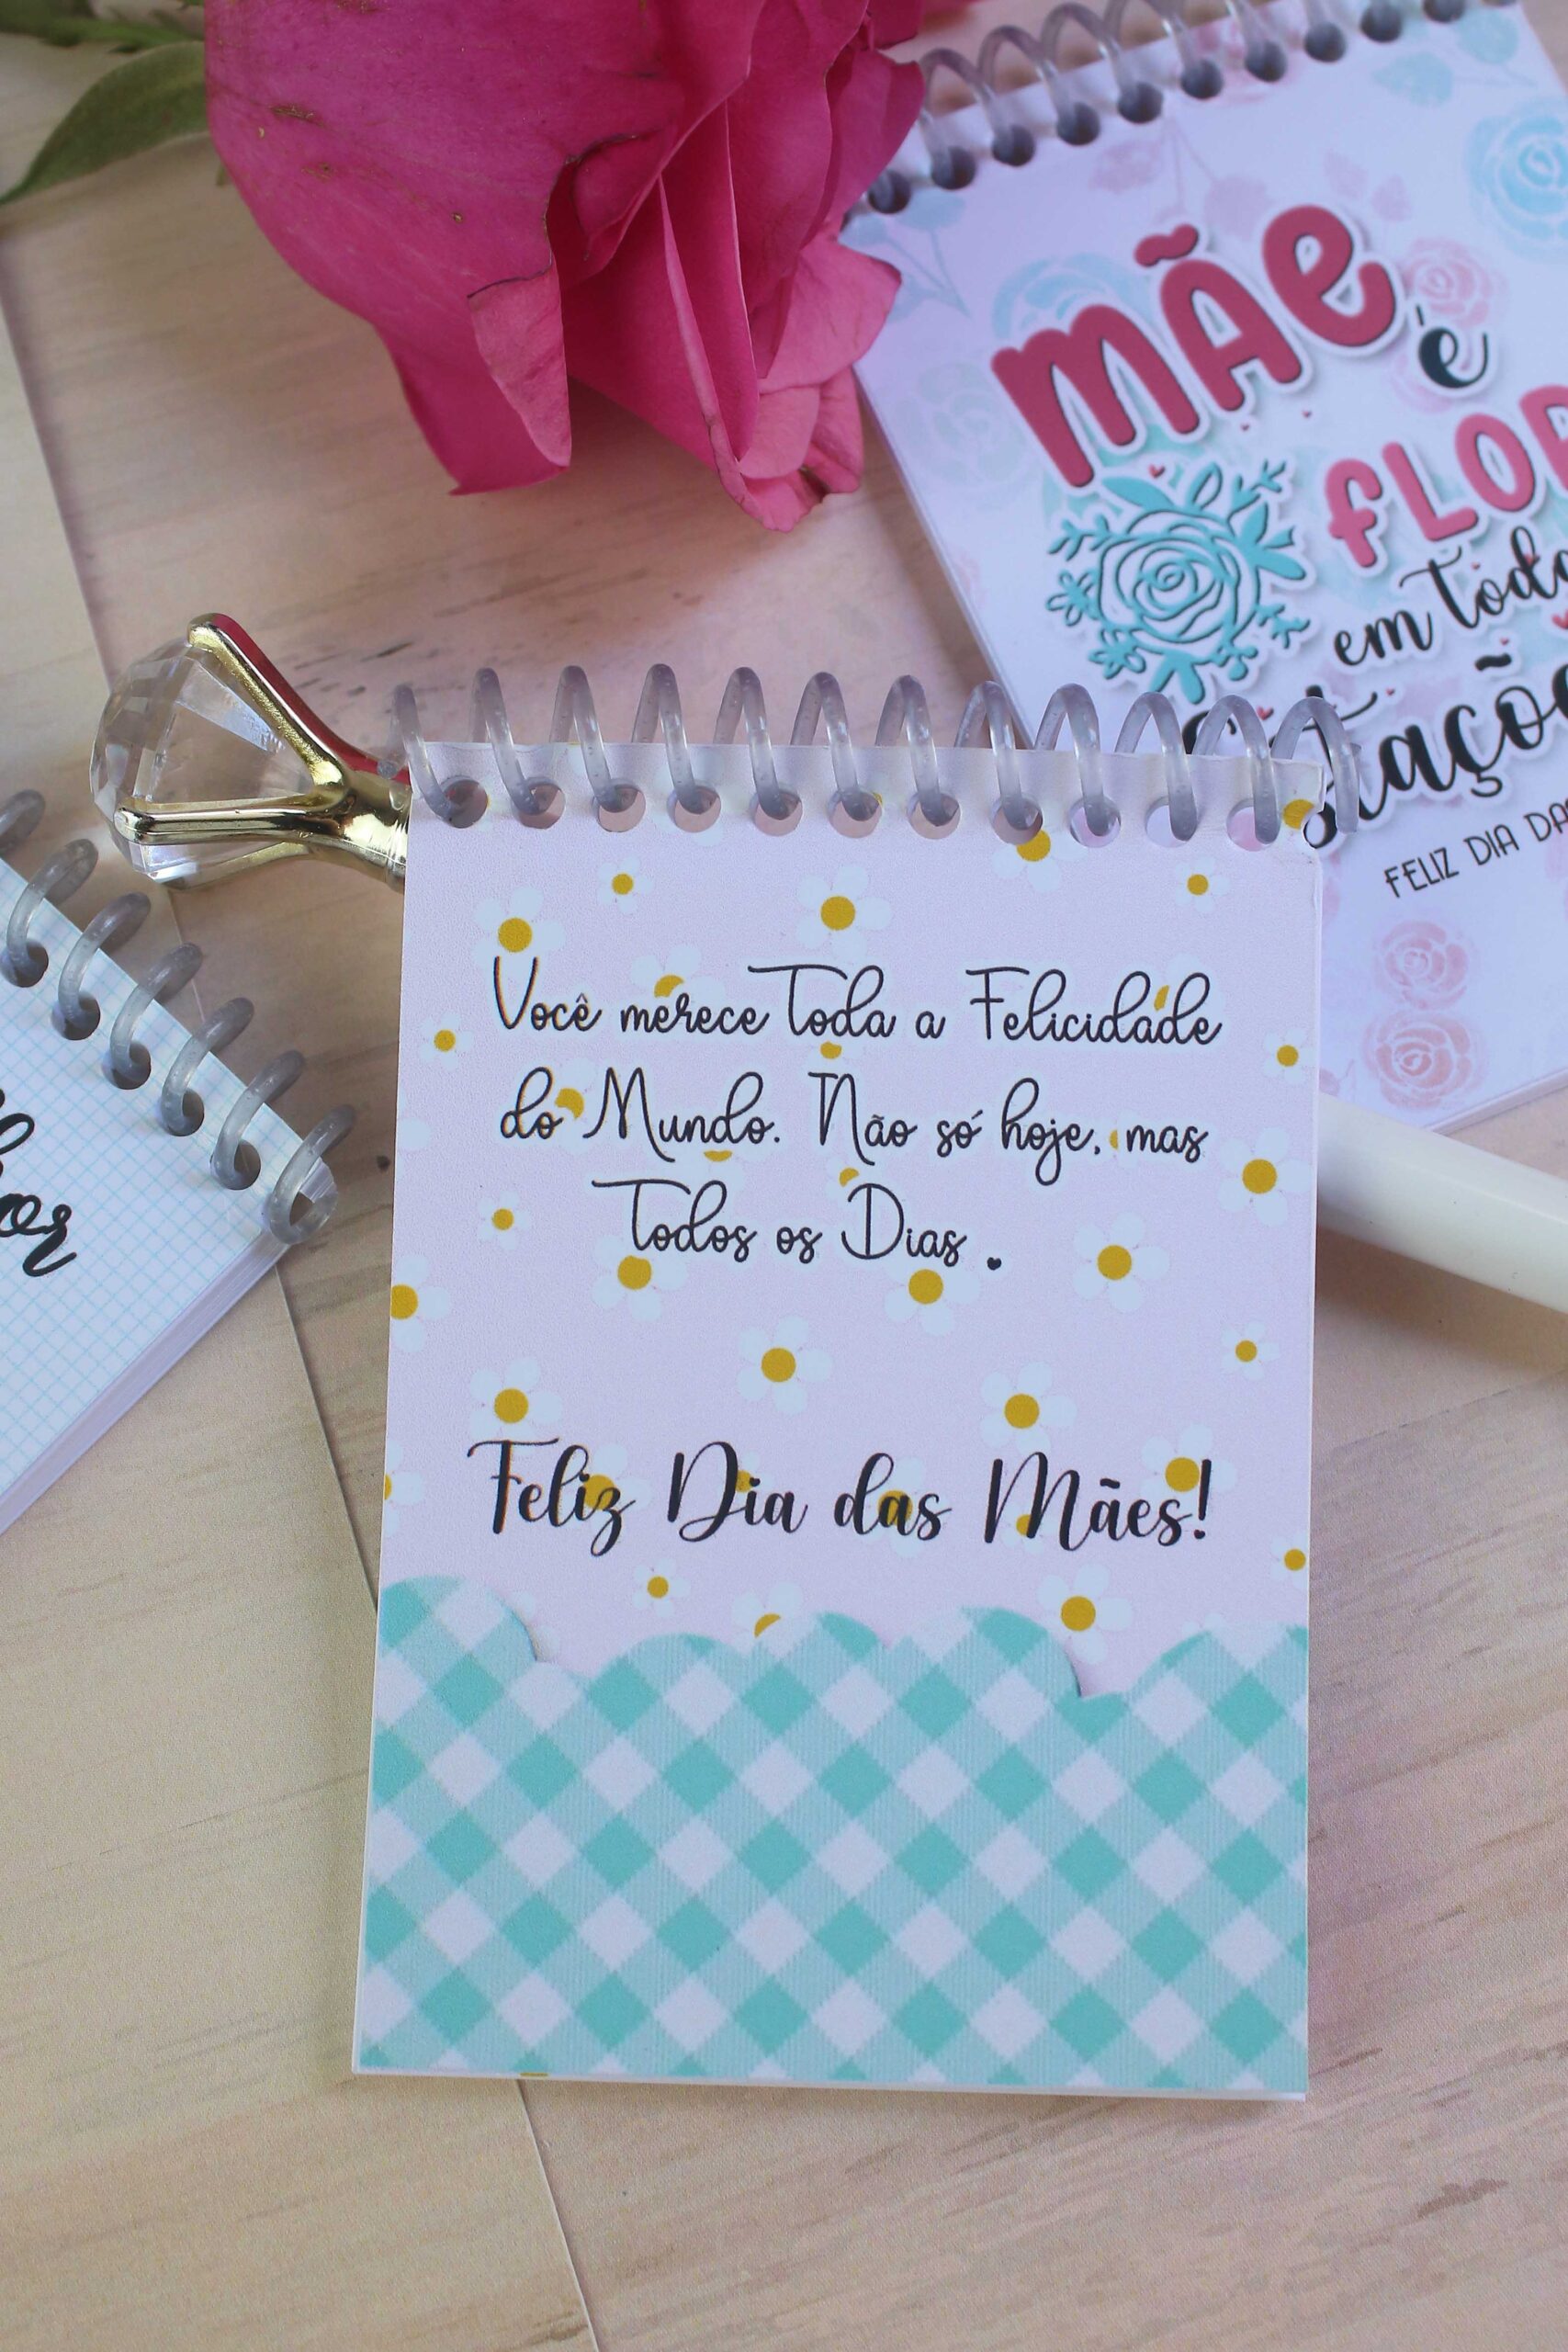 MÃE
é
em
FELIZ DIA
Você merece Toda a Felicidade
do Mundo. Não só hoje, mas
Todos os Dias.
Feliz Dia das Mães!